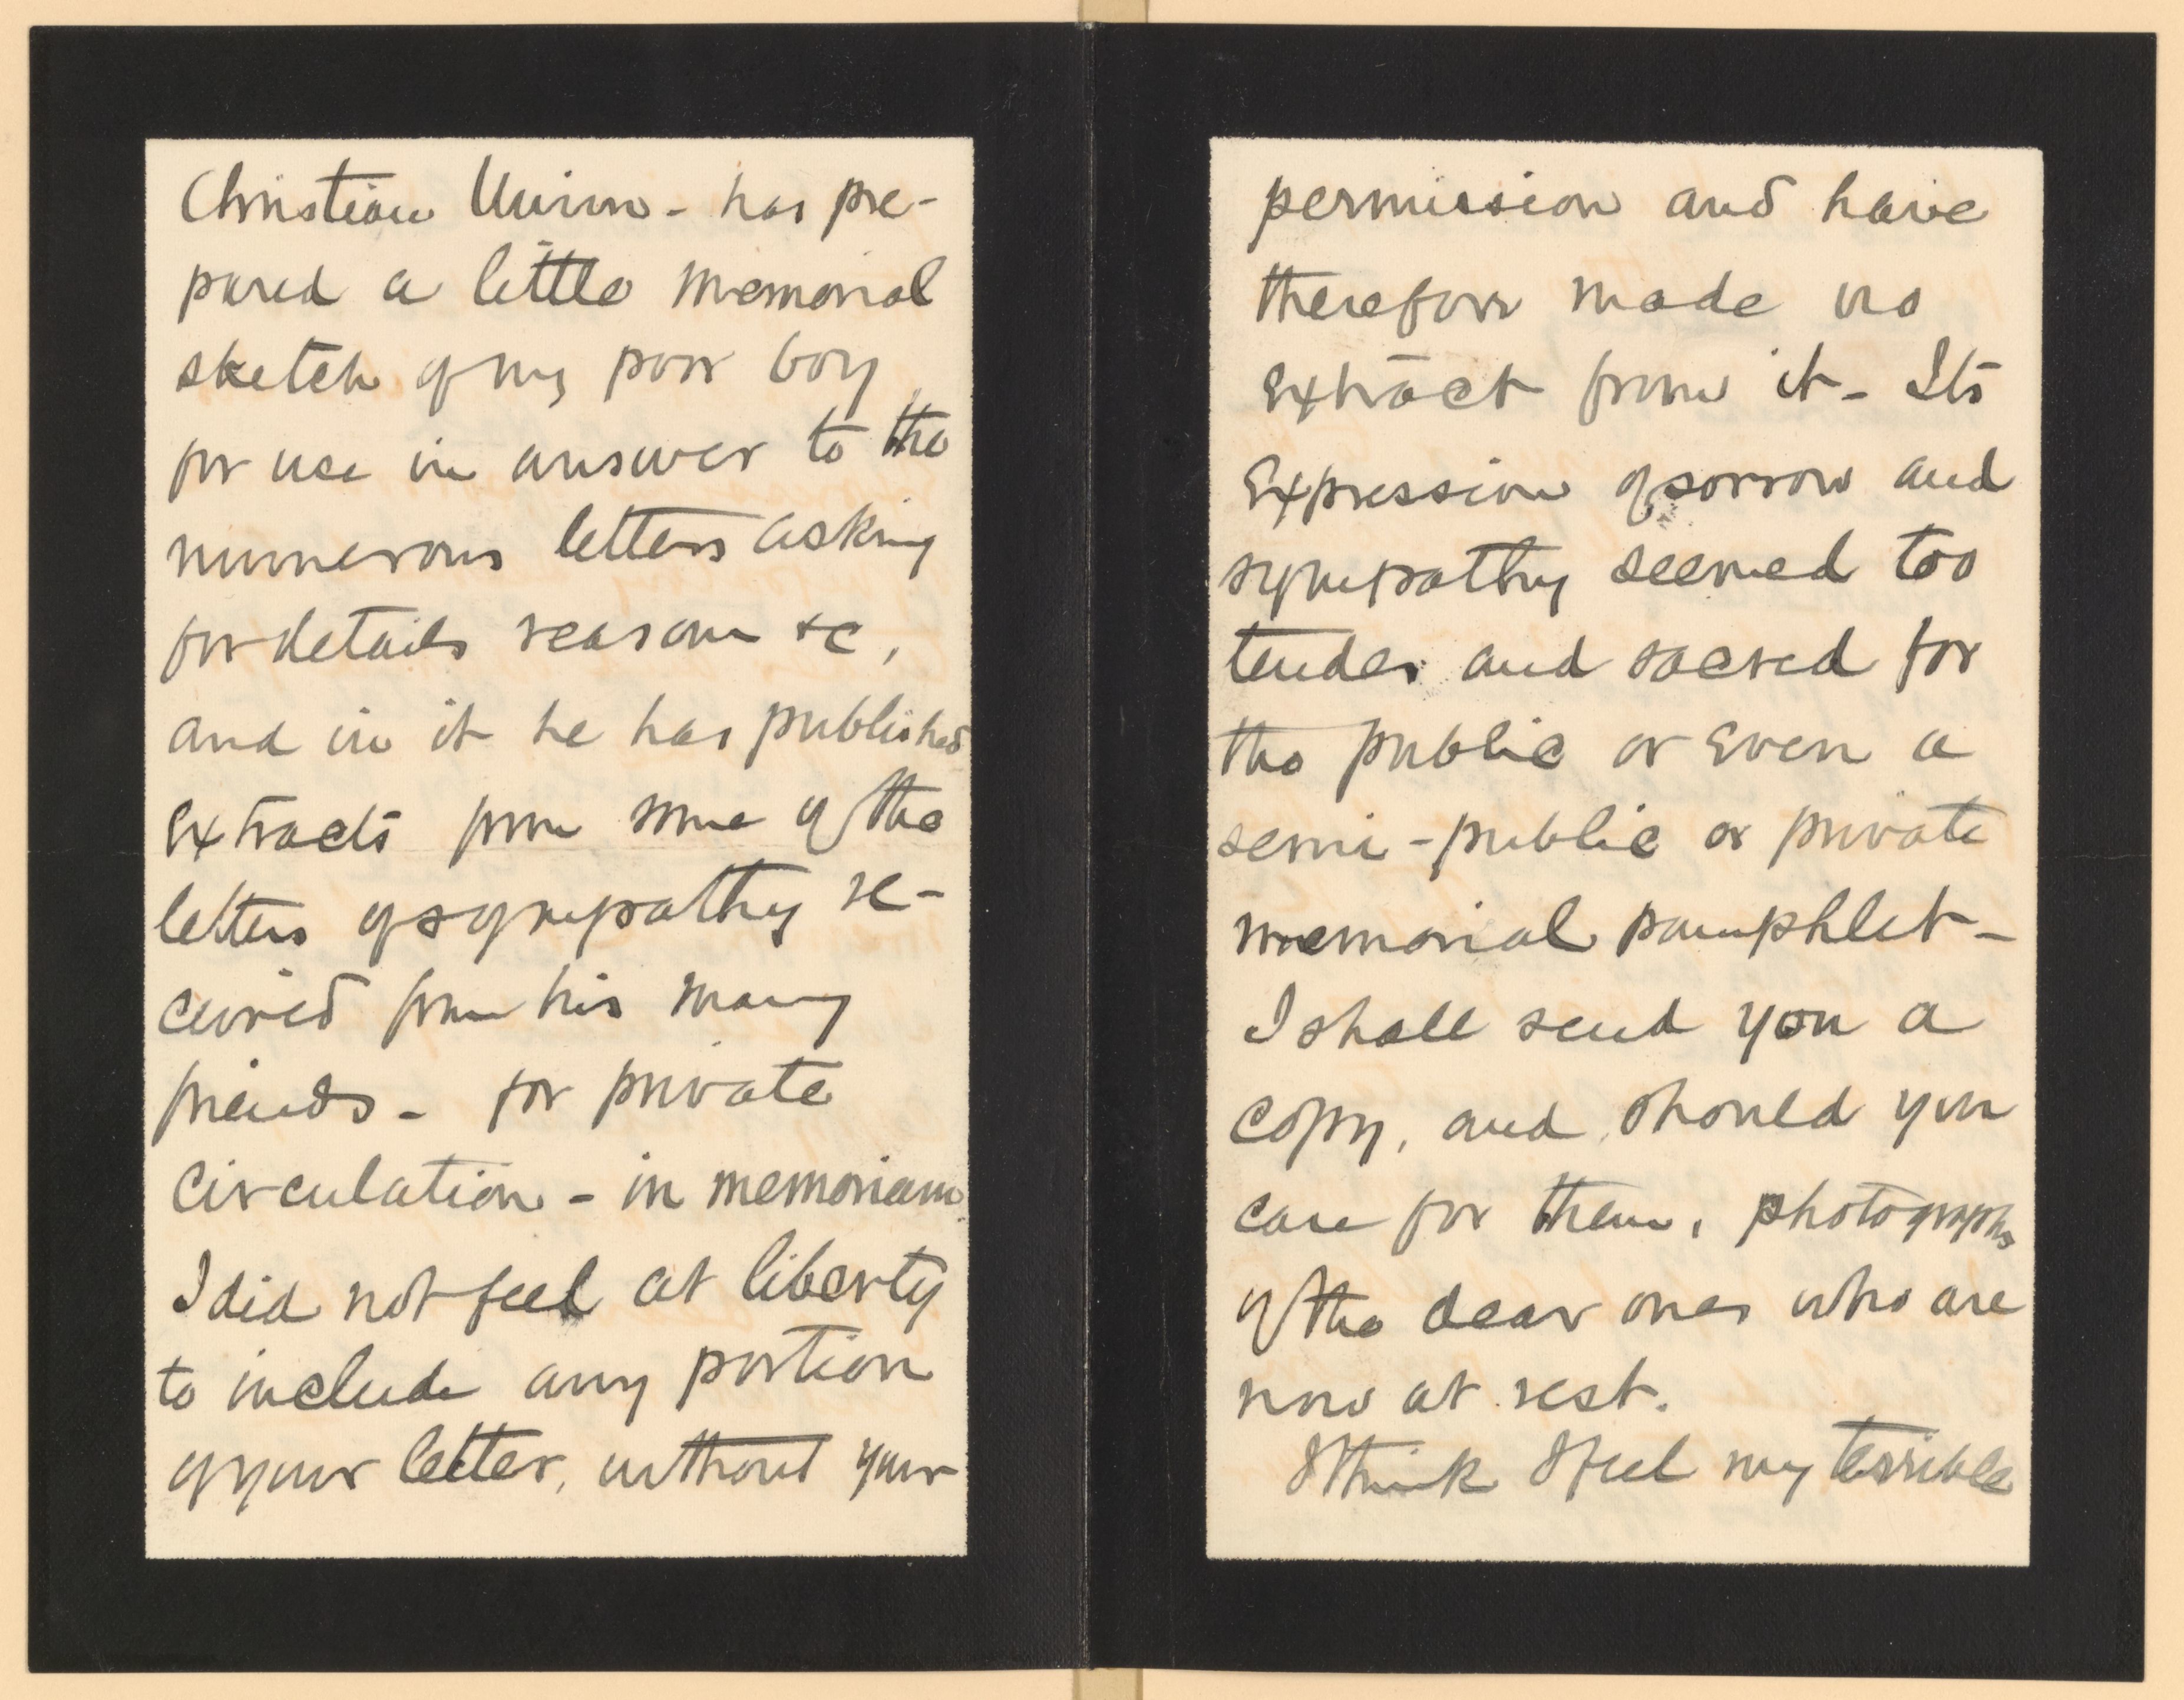 Christian Union - has pre-
pared a little memorial
sketch of my poor boy
for use in answer to the
numerous letters asking
for details reasons &c,
and in it he has published
extracts from some of the
letters of sympathy re-
ceived from his many
friends - for private
circulation - in memoriam.
I did not feel at liberty
to include any portion
of your letter, without your
permission and have
therefore made no
extract from it - Its
expression of sorrow and
sympathy seemed too
tender and sacred for
the public or even a
semi-public or private
memorial pamphlet -
I shall send you a
copy, and should you
care for them, photographs
of the dear ones who are
now at rest.
I think I feel my terrible